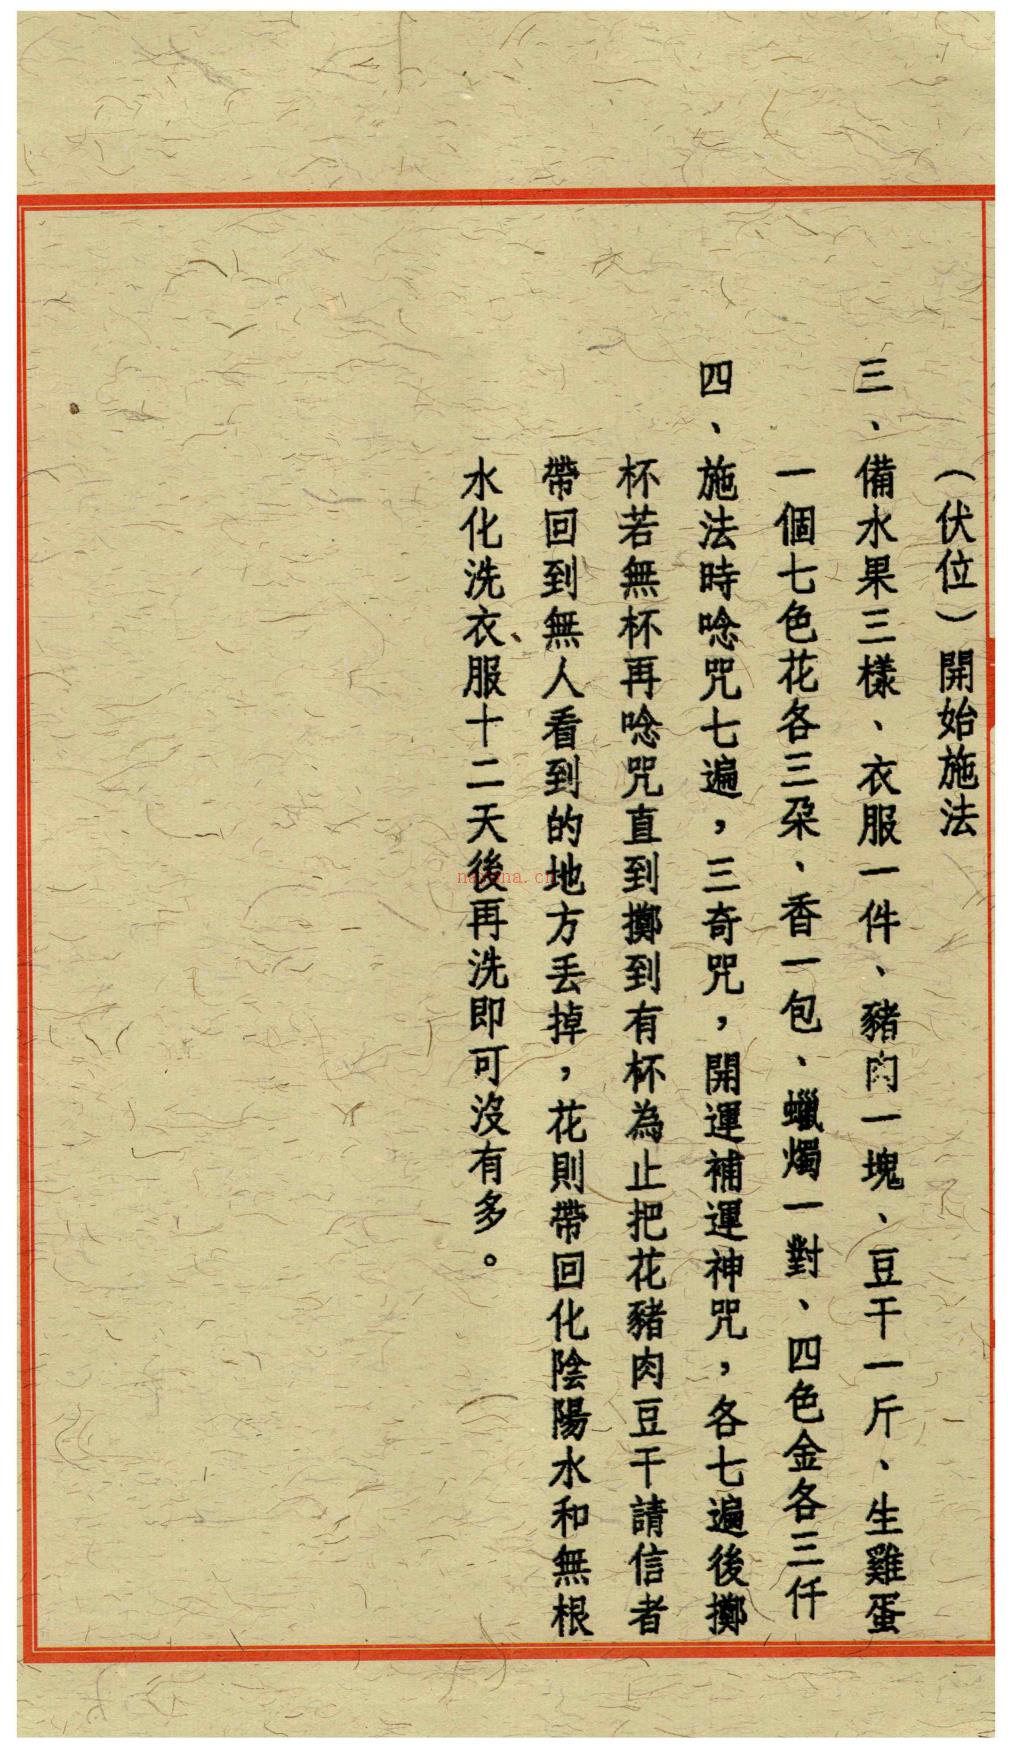 （伏位）開始施法
三、備水果三樣、衣服一件、豬肉一塊、豆干一斤、生雞蛋
一個七色花各三朶、香一包、蠟燭一對、四色金各三仟
四、施法時唸咒七遍，三奇咒，開運補運神咒，各七遍後擲
杯若無杯再唸咒直到擲到有杯為止把花豬肉豆干請信者
帶回到無人看到的地方丢掉，花則帶回化陰陽水和無根
水化洗衣服十二天後再洗即可沒有多。